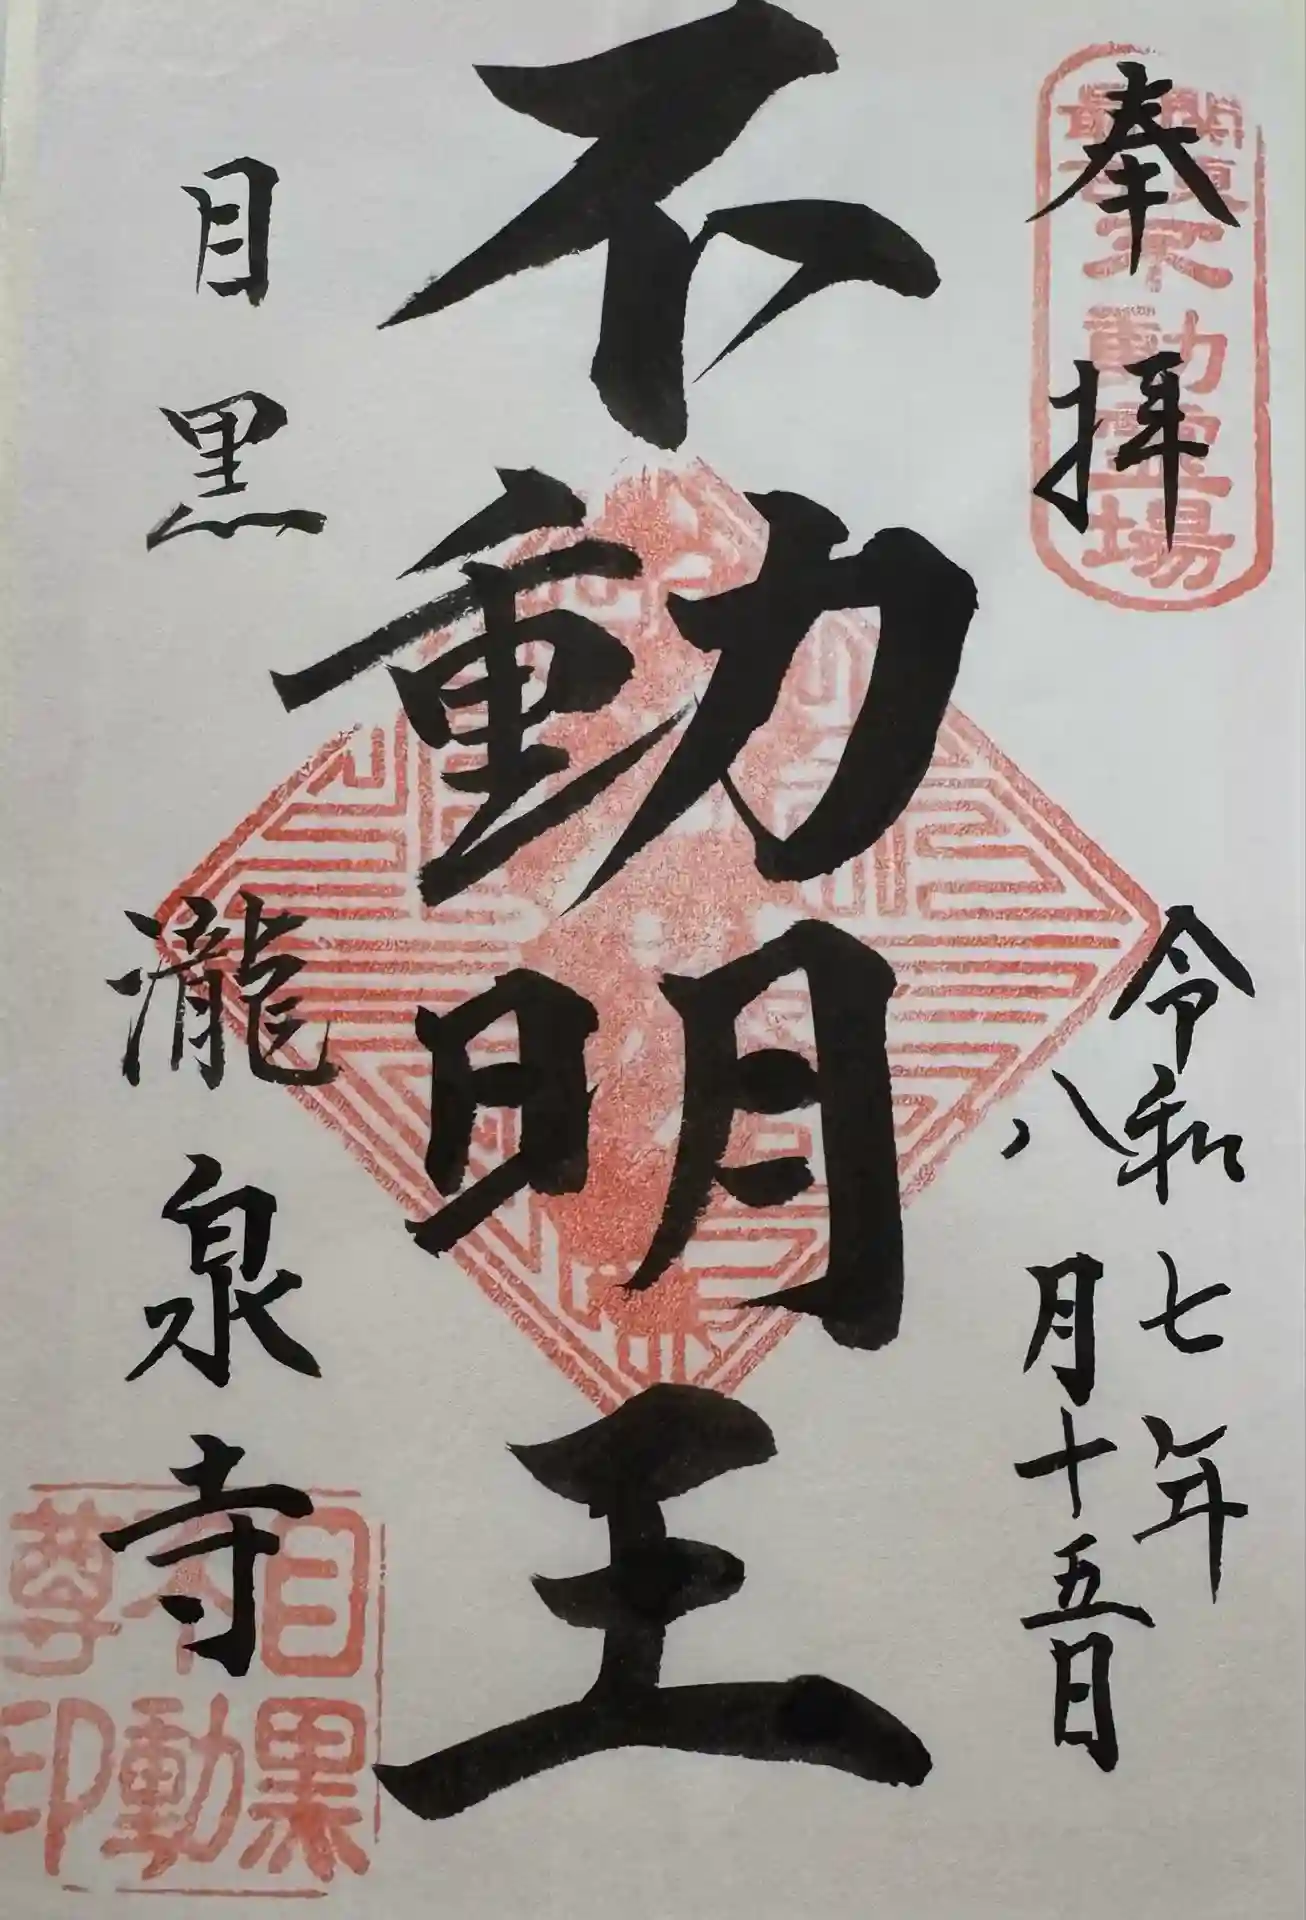 奉拝
關東
最古
不動霊場
令和七年
八月十五日
不動明王
目黒
瀧泉寺
目黒
不動
尊印